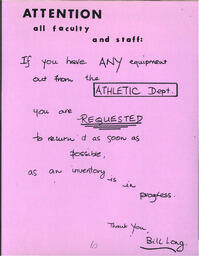 ATTENTION
all faculty
and staff:
If you have ANY equipment
out from the
ATHLETIC Dept.
you are
REQUESTED
to return it as soon as
possible,
as an inventory is in
progress.
Thank You,
Bill Long.